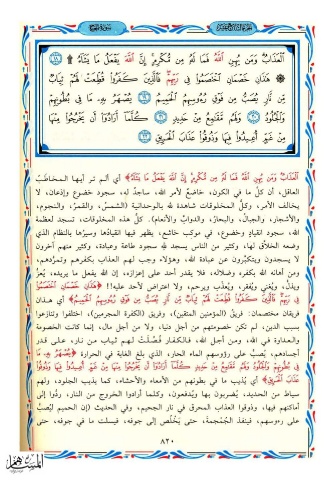 ٱلْعَذَابُ وَمَن يُهِنِ ٱللَّهُ فَمَا لَهُۥ مِن مُّكْرِمٍ إِنَّ ٱللَّهَ يَفْعَلُ مَا يَشَآءُ ۩ ١٨
۞ هَٰذَانِ خَصْمَانِ ٱخْتَصَمُوا۟ فِى رَبِّهِمْ فَٱلَّذِينَ كَفَرُوا۟ قُطِّعَتْ لَهُمْ ثِيَابٌ
مِّن نَّارٍ يُصَبُّ مِن فَوْقِ رُءُوسِهِمُ ٱلْحَمِيمُ ١٩ يُصْهَرُ بِهِۦ مَا فِى بُطُونِهِمْ
وَٱلْجُلُودُ ٢٠ وَلَهُم مَّقَٰمِعُ مِنْ حَدِيدٍ ٢١ كُلَّمَآ أَرَادُوٓا۟ أَن يَخْرُجُوا۟ مِنْهَا
مِنْ غَمٍّ أُعِيدُوا۟ فِيهَا وَذُوقُوا۟ عَذَابَ ٱلْحَرِيقِ ٢٢
العَذَابُ وَمَن يُهِنِ اللَّهُ فَمَا لَهُ مِن مُّكْرِمٍ إِنَّ اللَّهَ يَفْعَلُ مَا يَشَاءُ﴾ أي ألم تر أيها المخاطَبُ
العاقل، أن كلَّ ما في الكون، خاضعٌ لأمر الله، ساجدٌ له، سجود خضوع وإذعان، لا
يخالف الأمر، وكلُّ المخلوقات شاهدة لله بالوحدانية (الشمسُ، والقمرُ، والنجوم،
والأشجار، والجبالُ، والبحارُ، والدوابُّ والأنعام). كلُّ هذه المخلوقات، تسجد لعظمة
الله، سجود انقيادٍ وخضوع، في موكب خاشع، يظهر فيها انقيادُها وسيرُها بالنظام الذي
وضعه الخلاق لها، وكثير من الناس يسجد لله سجود طاعة وعبادة، وكثير منهم آخرون
لا يسجدون ويتكبَّرون عن عبادة الله، وهؤلاء وجب لهم العذاب بكفرهم وتمردهم،
ومن أهانه الله بكفره وضلاله، فلا يقدر أحد على إعزازه، إن الله يفعل ما يريد، يُعزُّ
ويذلُّ، ويُغني ويُفقر، ويُعذِّب ويرحم، ولا اعتراض لأحد عليه!! ﴿هَٰذَانِ خَصْمَانِ اخْتَصَمُوا
فِي رَبِّهِمْ فَالَّذِينَ كَفَرُوا قُطِّعَتْ لَهُمْ ثِيَابٌ مِّن نَّارٍ يُصَبُّ مِن فَوْقِ رُءُوسِهِمُ الْحَمِيمُ﴾ أي هذان
فريقان مختصمان: فريقُ (المؤمنين المتقين)، وفريق (الكفرة المجرمين)، اختلفوا وتنازعوا
بسبب الدين، لم تكن خصومتهم من أجل دنيا، ولا من أجل مال، إنما كانت الخصومة
والعداوة في الله، ومن أجل الله، فالكفار فُصِّلت لهم ثياب من نار، على قدر
أجسادهم، يُصبُّ على رؤوسهم الماء الحار، الذي بلغ الغاية في الحرارة ﴿يُصْهَرُ بِهِ مَا
فِي بُطُونِهِمْ وَالْجُلُودُ وَلَهُم مَّقَامِعُ مِنْ حَدِيدٍ كُلَّمَا أَرَادُوا أَن يَخْرُجُوا مِنْهَا مِنْ غَمٍّ أُعِيدُوا فِيهَا وَذُوقُوا
عَذَابَ الْحَرِيقِ﴾ أي يُذيب ما في بطونهم من الأمعاء والأحشاء، كما يذيب الجلود، ولهم
سياط من الحديد، يُضربون بها ويُدفعون، وكلما أرادوا الخروج من النار، رُدُّوا إلى
أماكنهم فيها، وذوقوا العذاب المحرق في نار الجحيم، وفي الحديث (إن الحميم ليُصبُّ
على رءوسهم، فينفذُ الجُمجمةَ، حتى يَخلُص إلى جوفه، فيسلت ما في جوفه، حتى
٨٢٠